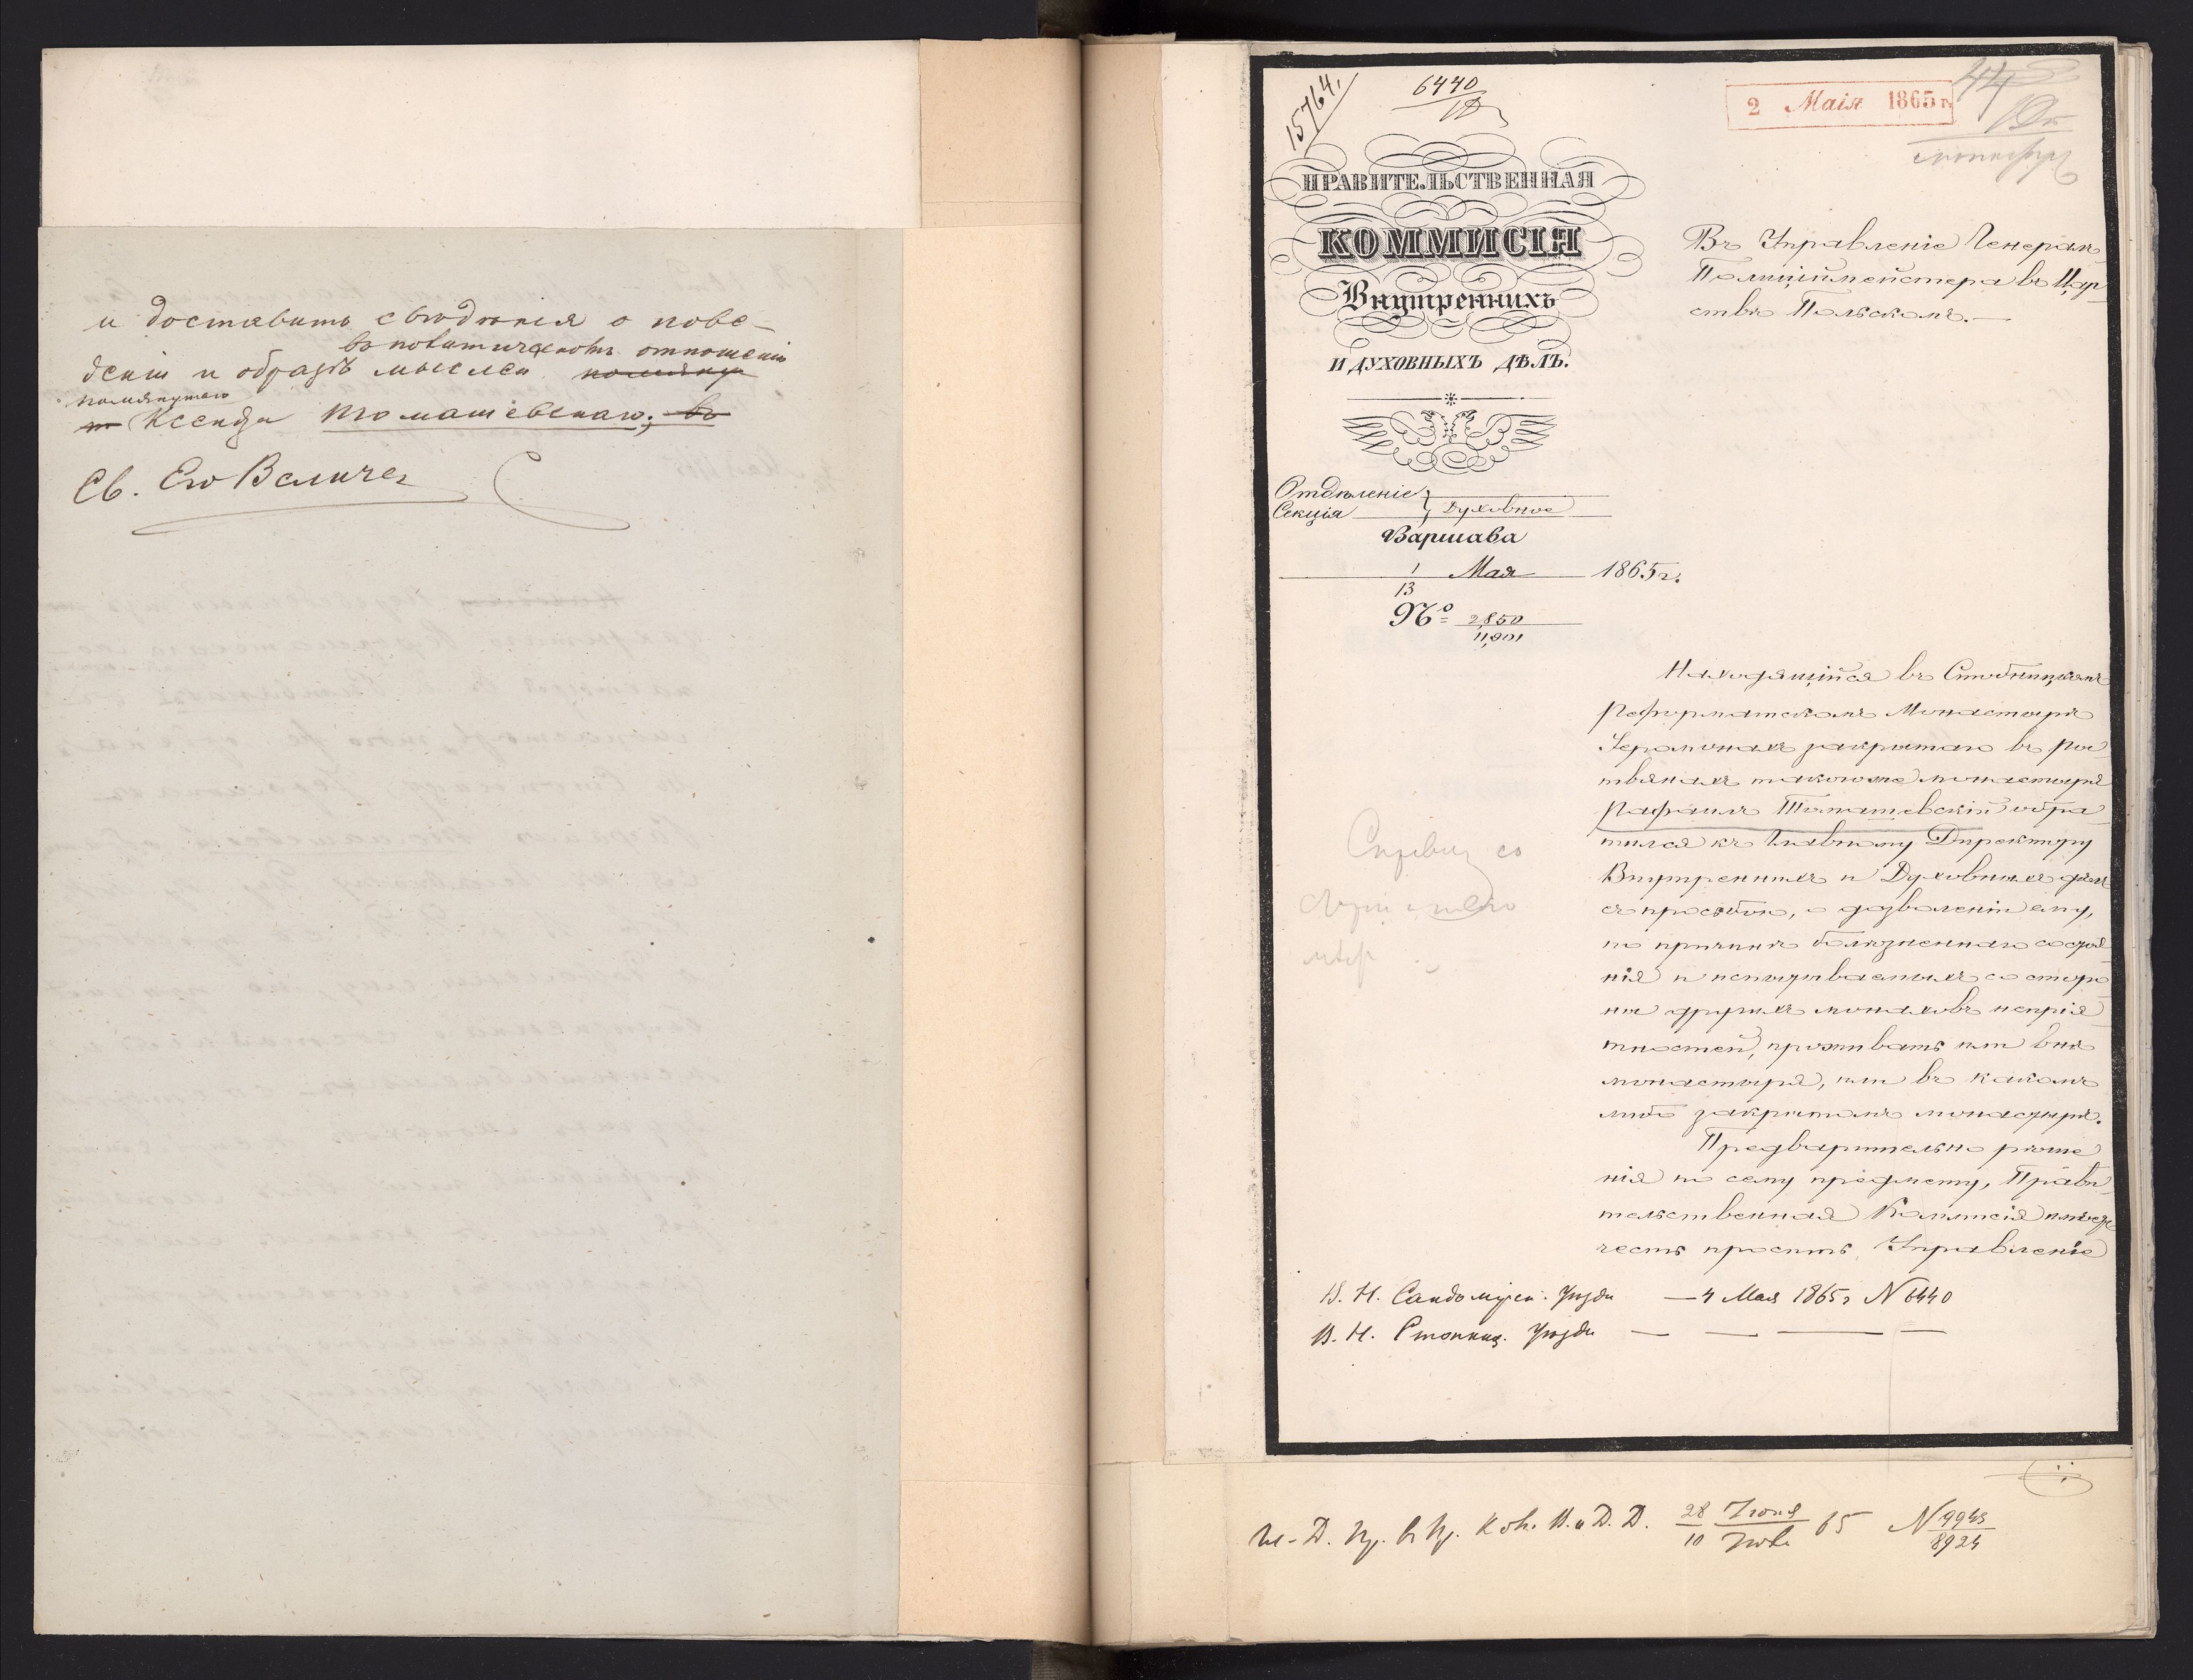 и доставить сведенія о пове-
въ политическомъ отношеніи
деніи и образѣ мыслей
помянутаго
Ксендза Томашевскаго; въ
Св. Его Величе
15764,
6440
2 Маія 1865 г.
44
ПРАВИТЕЛЬСТВЕННАЯ
КОММИСІЯ
Внутреннихъ
И ДУХОВНЫХЪ ДѢЛЪ.
Отдѣленіе
Секція } Духовное
Варшава
1/13 Мая 1865 г.
№ 2850/11,901
Въ Управленіе Генералъ
Полиціймейстера въ Цар-
ствѣ Польскомъ.—
Находящійся въ Стобницкомъ
Реформатскомъ Монастырѣ
Іеромонахъ закрытаго въ Ры
твянахъ такогоже монастыря
Рафаилъ Томашевскій обра
тился къ Главному Директору
Внутреннихъ и Духовныхъ дѣлъ
съ просьбою, о дозволеніи ему,
по причинѣ болѣзненнаго состоя
нія и испытываемыхъ со сторо
ны другихъ монаховъ непрія
тностей, проживать или внѣ
монастыря, или въ какомъ
либо закрытомъ монастырѣ.
Предварительно рѣше
нія по сему предмету, Прави
тельственная Коммисія имѣетъ
честь просить Управленіе
В. Н. Сандомірск. Уѣзда — 4 Мая 1865 г N 6440
В. Н. Стопниц. Уѣзда — — — —
Гл. Д. Пр. въ Пр. Ком. В. и Д. Д. 28/10 Іюня/Іюля 65 N 9943/8924